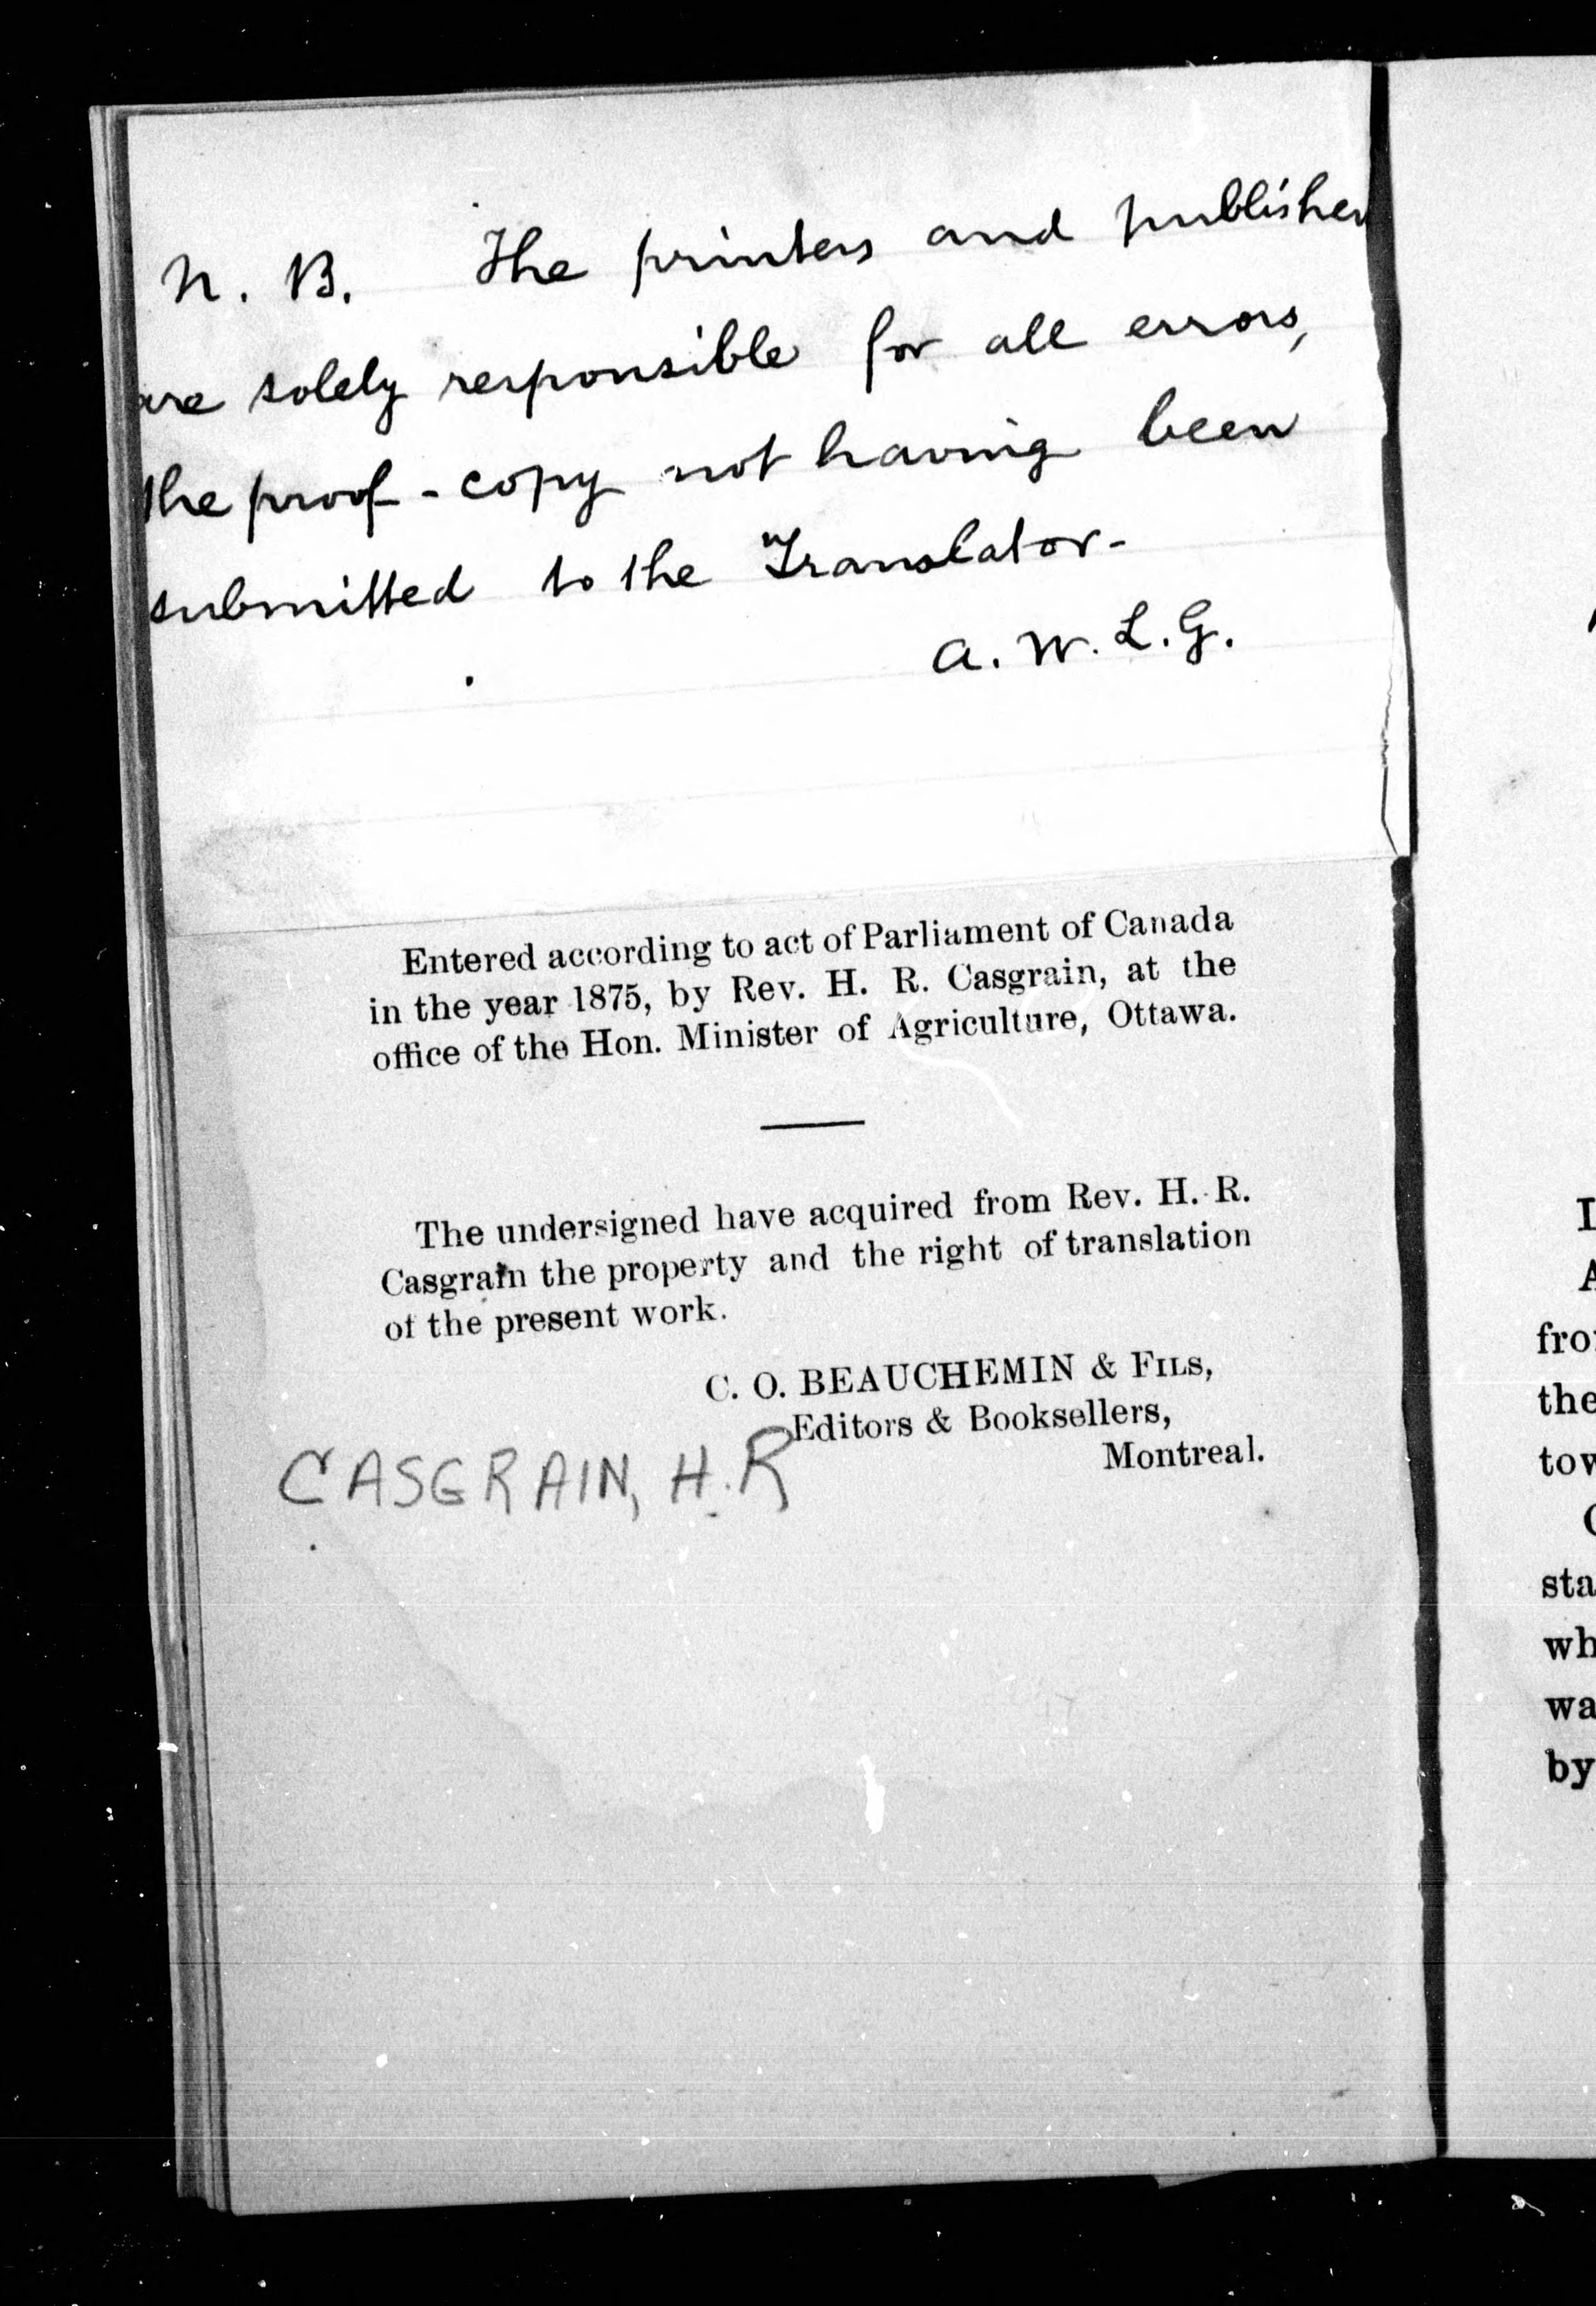 N. B. The printers and publisher
are solely responsible for all errors,
the proof-copy not having been
submitted to the Translator-
A. W. L. G.
Entered according to act of Parliament of Canada
in the year 1875, by Rev. H. R. Casgrain, at the
office of the Hon. Minister of Agriculture, Ottawa.
The undersigned have acquired from Rev. H. R.
Casgrain the property and the right of translation
of the present work.
C. O. BEAUCHEMIN & FILS,
Editors & Booksellers,
Montreal.
CASGRAIN, H. R
fro
the
tow
sta
wh
wa
by